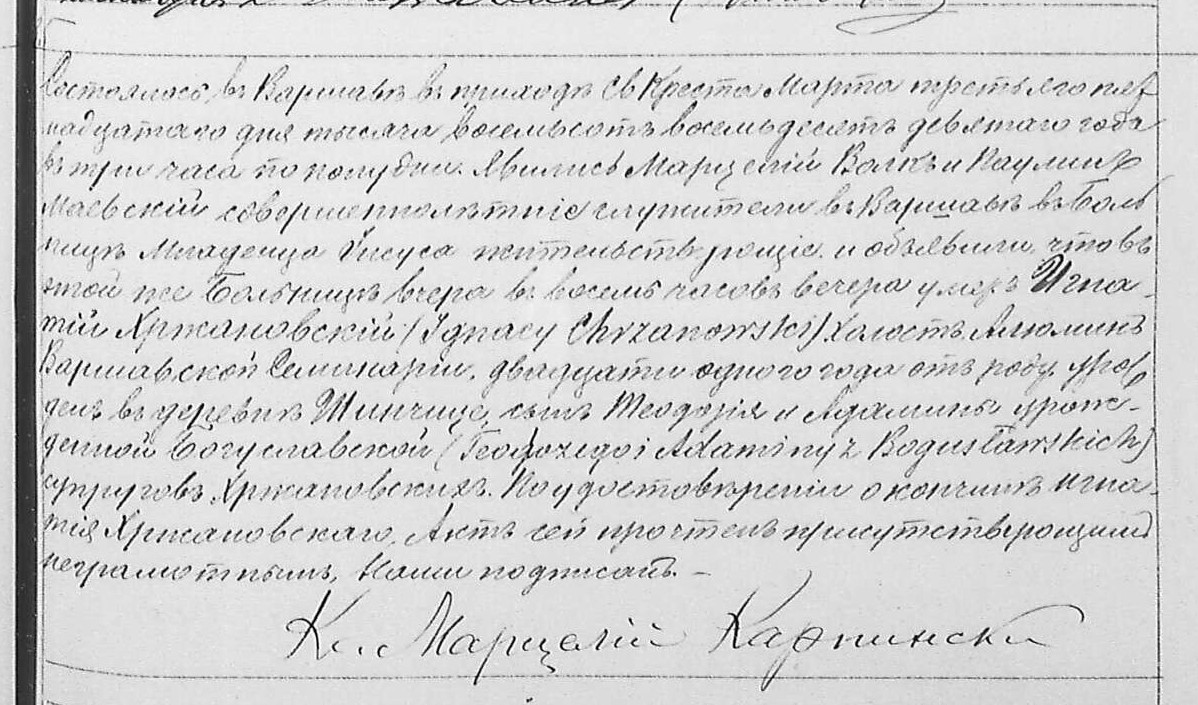 Состоялось въ Варшавѣ въ приходѣ Св Креста Марта третьяго пят
надцатаго дня тысяча восемьсотъ восемьдесятъ девятаго года
въ три часа по полудни. Явились Марцелій Волкъ и Паулинъ
Маевскій совершеннолѣтніе служители въ Варшавѣ въ Боль
ницѣ Младенца Іисуса жительствующіе. и объявили, что въ
этой же Больницѣ вчера въ восемь часовъ вечера умеръ Игна-
тій Хржановскій (Ignacy Chrzanowski) холостъ Алюмнъ
Варшавской Семинаріи. двадцати одного года отъ роду, урож
денъ въ деревнѣ Шинчице, сынъ Теодозія и Адамины урож-
денной Богуславской (Teodozego i Adaminy z Bogusławskich)
супруговъ Хржановскихъ. По удостовѣреніи о кончинѣ Игна-
тія Хржановскаго, Актъ сей прочтенъ присутствующимъ
неграмотнымъ, Нами подписанъ. –
Кс. Марцелій Карпински